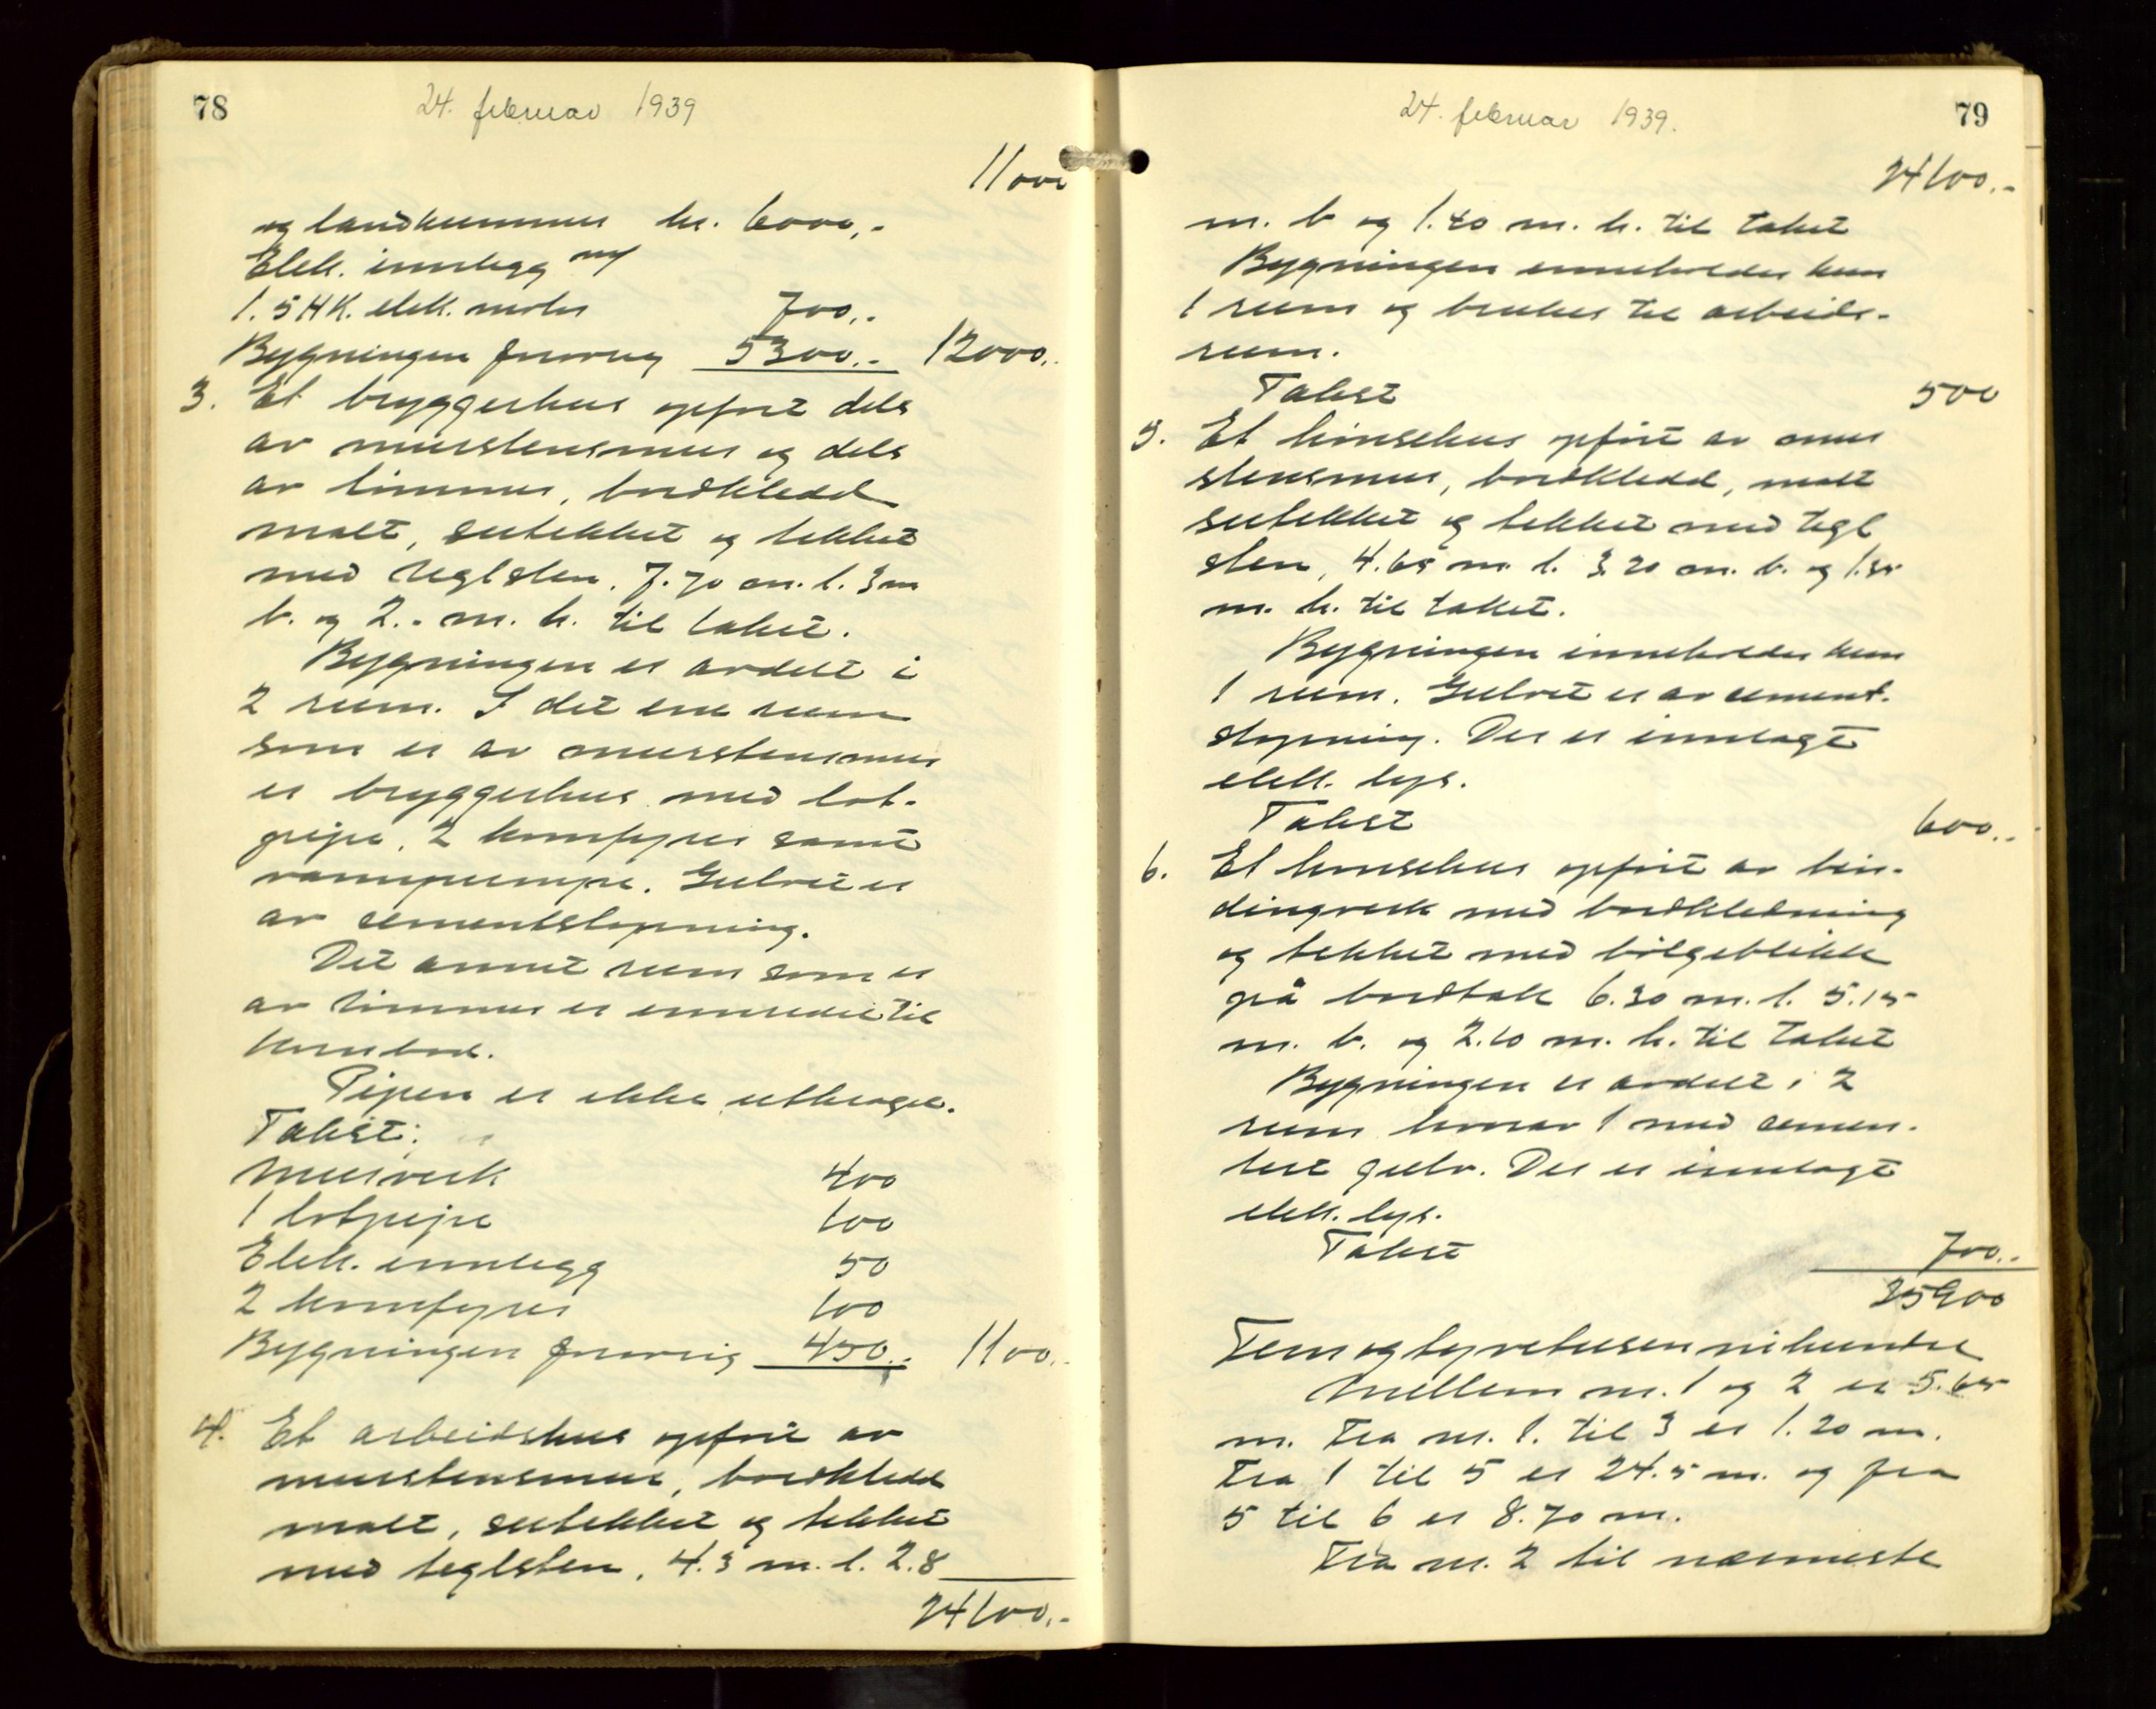 78
24. februar 1939
11000
og landkummer kr. 6000,-
Elek. innlegg m/
1.5 HK. elek. motor 700,-
Bygningen forøvrig 5300,- 12000,-
3. Et bryggerhus opført dels
av murstensmur og dels
av tømmer, bordkledd
malt, sutekket og tekket
med teglsten. 7.70 m. l. 3 m
b. og 2.- m. h. til taket.
Bygningen er avdelt i
2 rum. I det ene rum
som er av murstensmur
er bryggerhus med løt-
pipe, 2 komfyrer samt
vannpumpe. Gulvet er
av cementstøpning.
Det annet rum som er
av tømmer er innredet til
kornbod.
Pipen er ikke utkraget.
Takst:
Murverk 400
1 løtpipe 100
Elek. innlegg 50
2 komfyrer 100
Bygningen forøvrig 450,- 1100,-
4. Et arbeidshus opført av
murstensmur, bordkledd
malt, sutekket og tekket
med teglsten, 4.3 m. l. 2.8
24100,-
24. februar 1939.
79
24100,-
m. b og 1.40 m. h. til taket
Bygningen inneholder kun
1 rum og brukes til arbeids-
rum.
Takst 500
5. Et hønsehus opført av mur
stensmur, bordkledd, malt
sutekket og tekket med tegl
sten, 4.65 m. l. 3.20 m. b. og 1.35
m. h. til taket.
Bygningen inneholder kun
1 rum. Gulvet er av cement-
støpning. Der er innlagt
elek. lys.
Takst 600,-
6. Et hønsehus opført av bin-
dingverk med bordkledning
og tekket med bølgeblikk
på bordtak 6.30 m. l. 5.15
m. b. og 2.10 m. h. til taket
Bygningen er avdelt i 2
rum hvorav 1 med cemen-
tert gulv. Der er innlagt
elek. lys.
Takst 700,-
25900
Femogtyvetusennihundre
Mellem nr. 1 og 2 er 5.65
m. Fra nr. 1. til 3 er 1.20 m.
Fra 1 til 5 er 24.5 m. og fra
5 til 6 er 8.70 m.
Fra nr. 2 til nærmeste